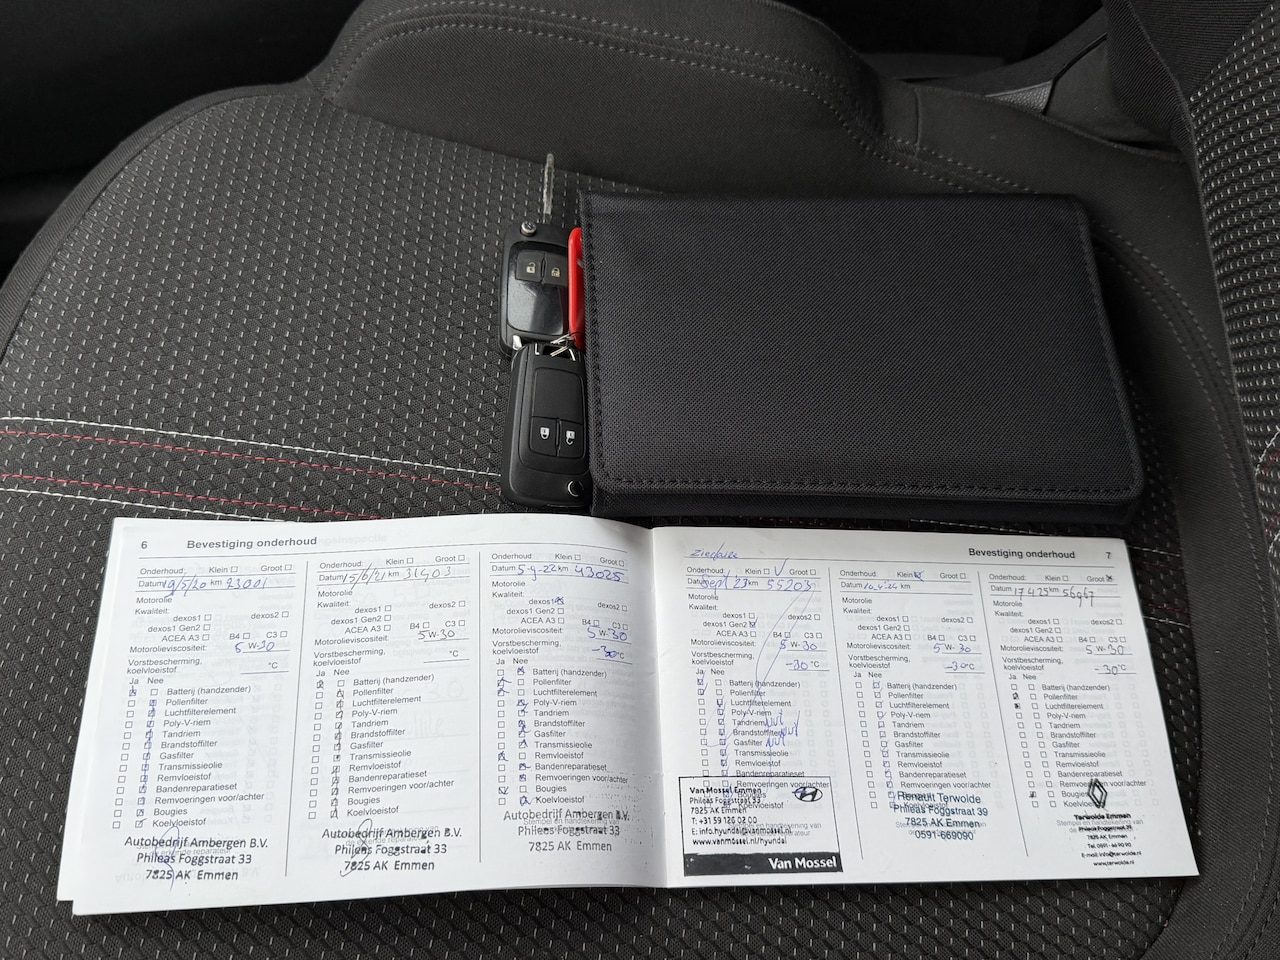 6 Bevestiging onderhoud
Onderhoud: Klein ☐ Groot ☐
Datum 19/5/20 km 23001
Motorolie
Kwaliteit:
dexos1 ☐ dexos2 ☐
dexos1 Gen2 ☐
ACEA A3 ☐ B4 ☐ C3 ☐
Motorolieviscositeit: 5 W-30
Vorstbescherming,
koelvloeistof °C
Ja Nee
Batterij (handzender)
Pollenfilter
Luchtfilterelement
Poly-V-riem
Tandriem
Brandstoffilter
Gasfilter
Transmissieolie
Remvloeistof
Bandenreparatieset
Remvoeringen voor/achter
Bougies
Koelvloeistof
Autobedrijf Ambergen B.V.
Phileas Foggstraat 33
7825 AK Emmen
Onderhoud: Klein ☐ Groot ☐
Datum 15/6/21 km 31403
Motorolie
Kwaliteit:
dexos1 ☐ dexos2 ☐
dexos1 Gen2 ☐
ACEA A3 ☐ B4 ☐ C3 ☐
Motorolieviscositeit: 5W-30
Vorstbescherming,
koelvloeistof °C
Ja Nee
Batterij (handzender)
Pollenfilter
Luchtfilterelement
Poly-V-riem
Tandriem
Brandstoffilter
Gasfilter
Transmissieolie
Remvloeistof
Bandenreparatieset
Remvoeringen voor/achter
Bougies
Koelvloeistof
Autobedrijf Ambergen B.V.
Phileas Foggstraat 33
7825 AK Emmen
Onderhoud: Klein ☐ Groot ☐
Datum 5-9-22 km 43025
Motorolie
Kwaliteit:
dexos1 dexos2 ☐
dexos1 Gen2 ☐
ACEA A3 ☐ B4 ☐ C3 ☐
Motorolieviscositeit: 5 W-30
Vorstbescherming,
koelvloeistof -30 °C
Ja Nee
Batterij (handzender)
Pollenfilter
Luchtfilterelement
Poly-V-riem
Tandriem
Brandstoffilter
Gasfilter
Transmissieolie
Remvloeistof
Bandenreparatieset
Remvoeringen voor/achter
Bougies
Koelvloeistof
Autobedrijf Ambergen B.V.
Phileas Foggstraat 33
7825 AK Emmen
Bevestiging onderhoud 7
Onderhoud: Klein ☐ Groot ☐
Datum Sept 23 km 55203
Motorolie
Kwaliteit:
dexos1 ☐ dexos2 ☐
dexos1 Gen2
ACEA A3 ☐ B4 ☐ C3 ☐
Motorolieviscositeit: 5 W-30
Vorstbescherming,
koelvloeistof -30 °C
Ja Nee
Batterij (handzender)
Pollenfilter
Luchtfilterelement
Poly-V-riem
Tandriem
Brandstoffilter
Gasfilter
Transmissieolie
Remvloeistof
Bandenreparatieset
Remvoeringen voor/achter
Bougies
Koelvloeistof
Van Mossel Emmen
Phileas Foggstraat 33
7825 AK Emmen
E: info.hyundai@vanmossel.nl
www.vanmossel.nl/hyundai
Van Mossel
Onderhoud: Klein Groot ☐
Datum km
Motorolie
Kwaliteit:
dexos1 ☐ dexos2 ☐
dexos1 Gen2 ☐
ACEA A3 ☐ B4 ☐ C3 ☐
Motorolieviscositeit: 5 W-30
Vorstbescherming,
koelvloeistof -30 °C
Ja Nee
Batterij (handzender)
Pollenfilter
Luchtfilterelement
Poly-V-riem
Tandriem
Brandstoffilter
Gasfilter
Transmissieolie
Remvloeistof
Bandenreparatieset
Remvoeringen voor/achter
Renault Terwolde
Phileas Foggstraat 39
7825 AK Emmen
0591-669090
Onderhoud: Klein ☐ Groot
Datum 17 4 25 km 56967
Motorolie
Kwaliteit:
dexos1 ☐ dexos2 ☐
dexos1 Gen2 ☐
ACEA A3 ☐ B4 ☐ C3 ☐
Motorolieviscositeit: 5 W-30
Vorstbescherming,
koelvloeistof -30 °C
Ja Nee
Batterij (handzender)
Pollenfilter
Luchtfilterelement
Poly-V-riem
Tandriem
Brandstoffilter
Gasfilter
Transmissieolie
Remvloeistof
Bandenreparatieset
Remvoeringen voor/achter
Bougies
Terwolde Emmen
Phileas Foggstraat 39
7825 AK Emmen
E-mail: info@terwolde.nl
www.terwolde.nl